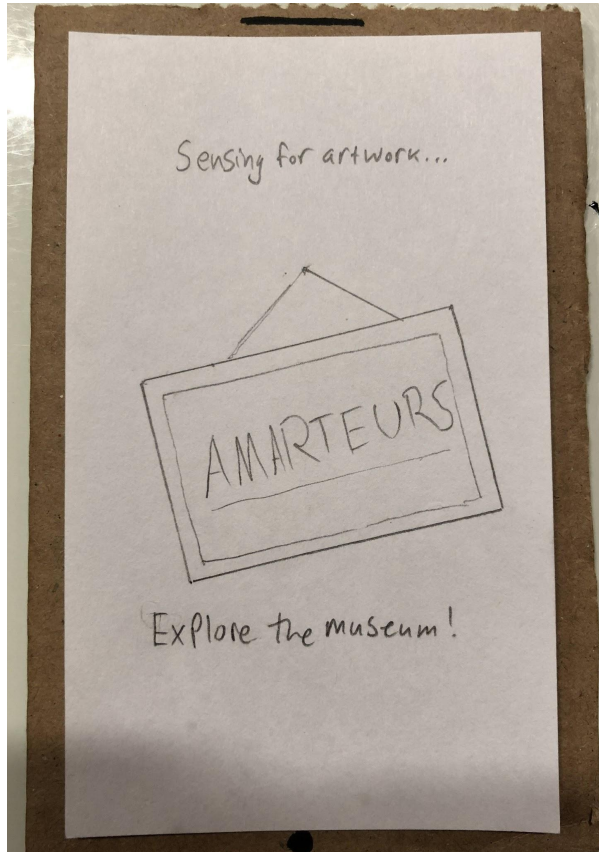 Sensing for artwork...
AMARTEURS
Explore the museum!